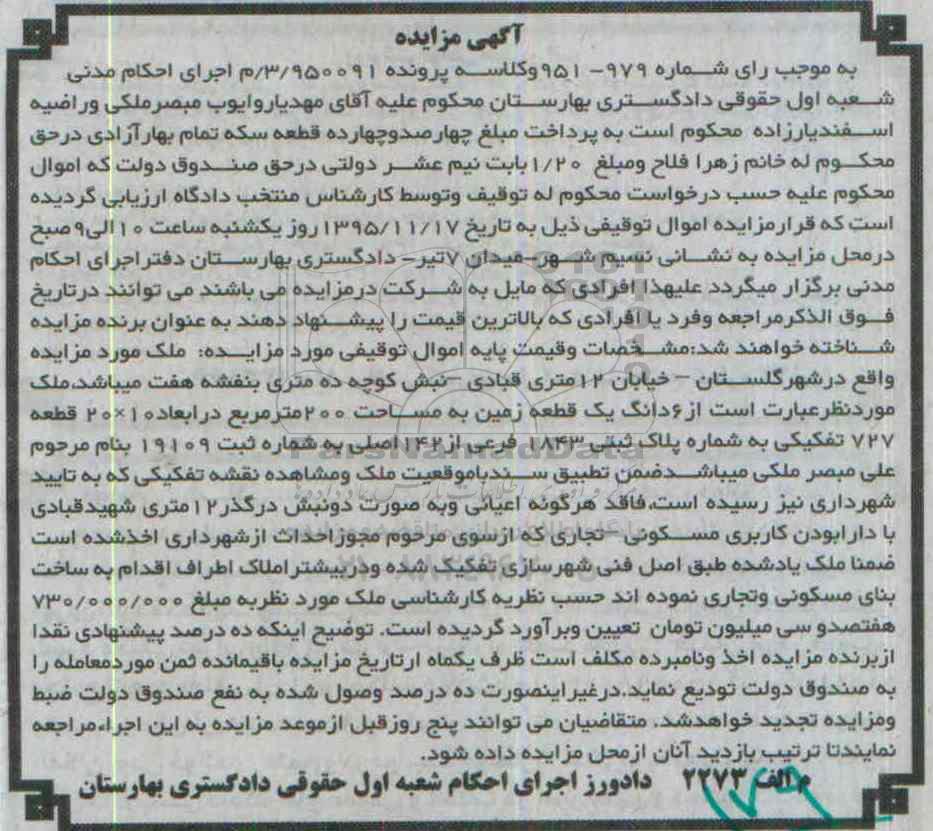 آگهی مزایده
به موجب رای شماره ۹۷۹- ۹۵۱ وکلاسه پرونده ۳/۹۵۰۰۹۱/م اجرای احکام مدنی
شعبه اول حقوقی دادگستری بهارستان محکوم علیه آقای مهدیاروایوب مبصرملکی وراضیه
اسفندیارزاده محکوم است به پرداخت مبلغ چهارصدوچهارده قطعه سکه تمام بهارآزادی درحق
محکوم له خانم زهرا فلاح ومبلغ ۱/۲۰ بابت نیم عشر دولتی درحق صندوق دولت که اموال
محکوم علیه حسب درخواست محکوم له توقیف وتوسط کارشناس منتخب دادگاه ارزیابی گردیده
است که قرارمزایده اموال توقیفی ذیل به تاریخ ۱۳۹۵/۱۱/۱۷ روز یکشنبه ساعت ۱۰الی۹صبح
درمحل مزایده به نشانی نسیم شهر-میدان ۷تیر- دادگستری بهارستان دفتراجرای احکام
مدنی برگزار میگردد علیهذا افرادی که مایل به شرکت درمزایده می باشند می توانند درتاریخ
فوق الذکرمراجعه وفرد یا افرادی که بالاترین قیمت را پیشنهاد دهند به عنوان برنده مزایده
شناخته خواهند شد:مشخصات وقیمت پایه اموال توقیفی مورد مزایده: ملک مورد مزایده
واقع درشهرگلستان – خیابان ۱۲متری قبادی –نبش کوچه ده متری بنفشه هفت میباشد،ملک
موردنظرعبارت است از۶دانگ یک قطعه زمین به مساحت ۲۰۰مترمربع درابعاد۱۰×۲۰ قطعه
۷۲۷ تفکیکی به شماره پلاک ثبتی ۱۸۴۳ فرعی از۱۴۲اصلی به شماره ثبت ۱۹۱۰۹ بنام مرحوم
علی مبصر ملکی میباشدضمن تطبیق سندباموقعیت ملک ومشاهده نقشه تفکیکی که به تایید
شهرداری نیز رسیده است،فاقد هرگونه اعیانی وبه صورت دونبش درگذر۱۲متری شهیدقبادی
با دارابودن کاربری مسکونی –تجاری که ازسوی مرحوم مجوزاحداث ازشهرداری اخذشده است
ضمنا ملک یادشده طبق اصل فنی شهرسازی تفکیک شده ودربیشتراملاک اطراف اقدام به ساخت
بنای مسکونی وتجاری نموده اند حسب نظریه کارشناسی ملک مورد نظربه مبلغ ۷۳۰/۰۰۰/۰۰۰
هفتصدو سی میلیون تومان تعیین وبرآورد گردیده است. توضیح اینکه ده درصد پیشنهادی نقدا
ازبرنده مزایده اخذ ونامبرده مکلف است ظرف یکماه ارتاریخ مزایده باقیمانده ثمن موردمعامله را
به صندوق دولت تودیع نماید.درغیراینصورت ده درصد وصول شده به نفع صندوق دولت ضبط
ومزایده تجدید خواهدشد. متقاضیان می توانند پنج روزقبل ازموعد مزایده به این اجراءمراجعه
نمایندتا ترتیب بازدید آنان ازمحل مزایده داده شود.
م الف ۲۲۷۳ دادورز اجرای احکام شعبه اول حقوقی دادگستری بهارستان
ParsNamadData